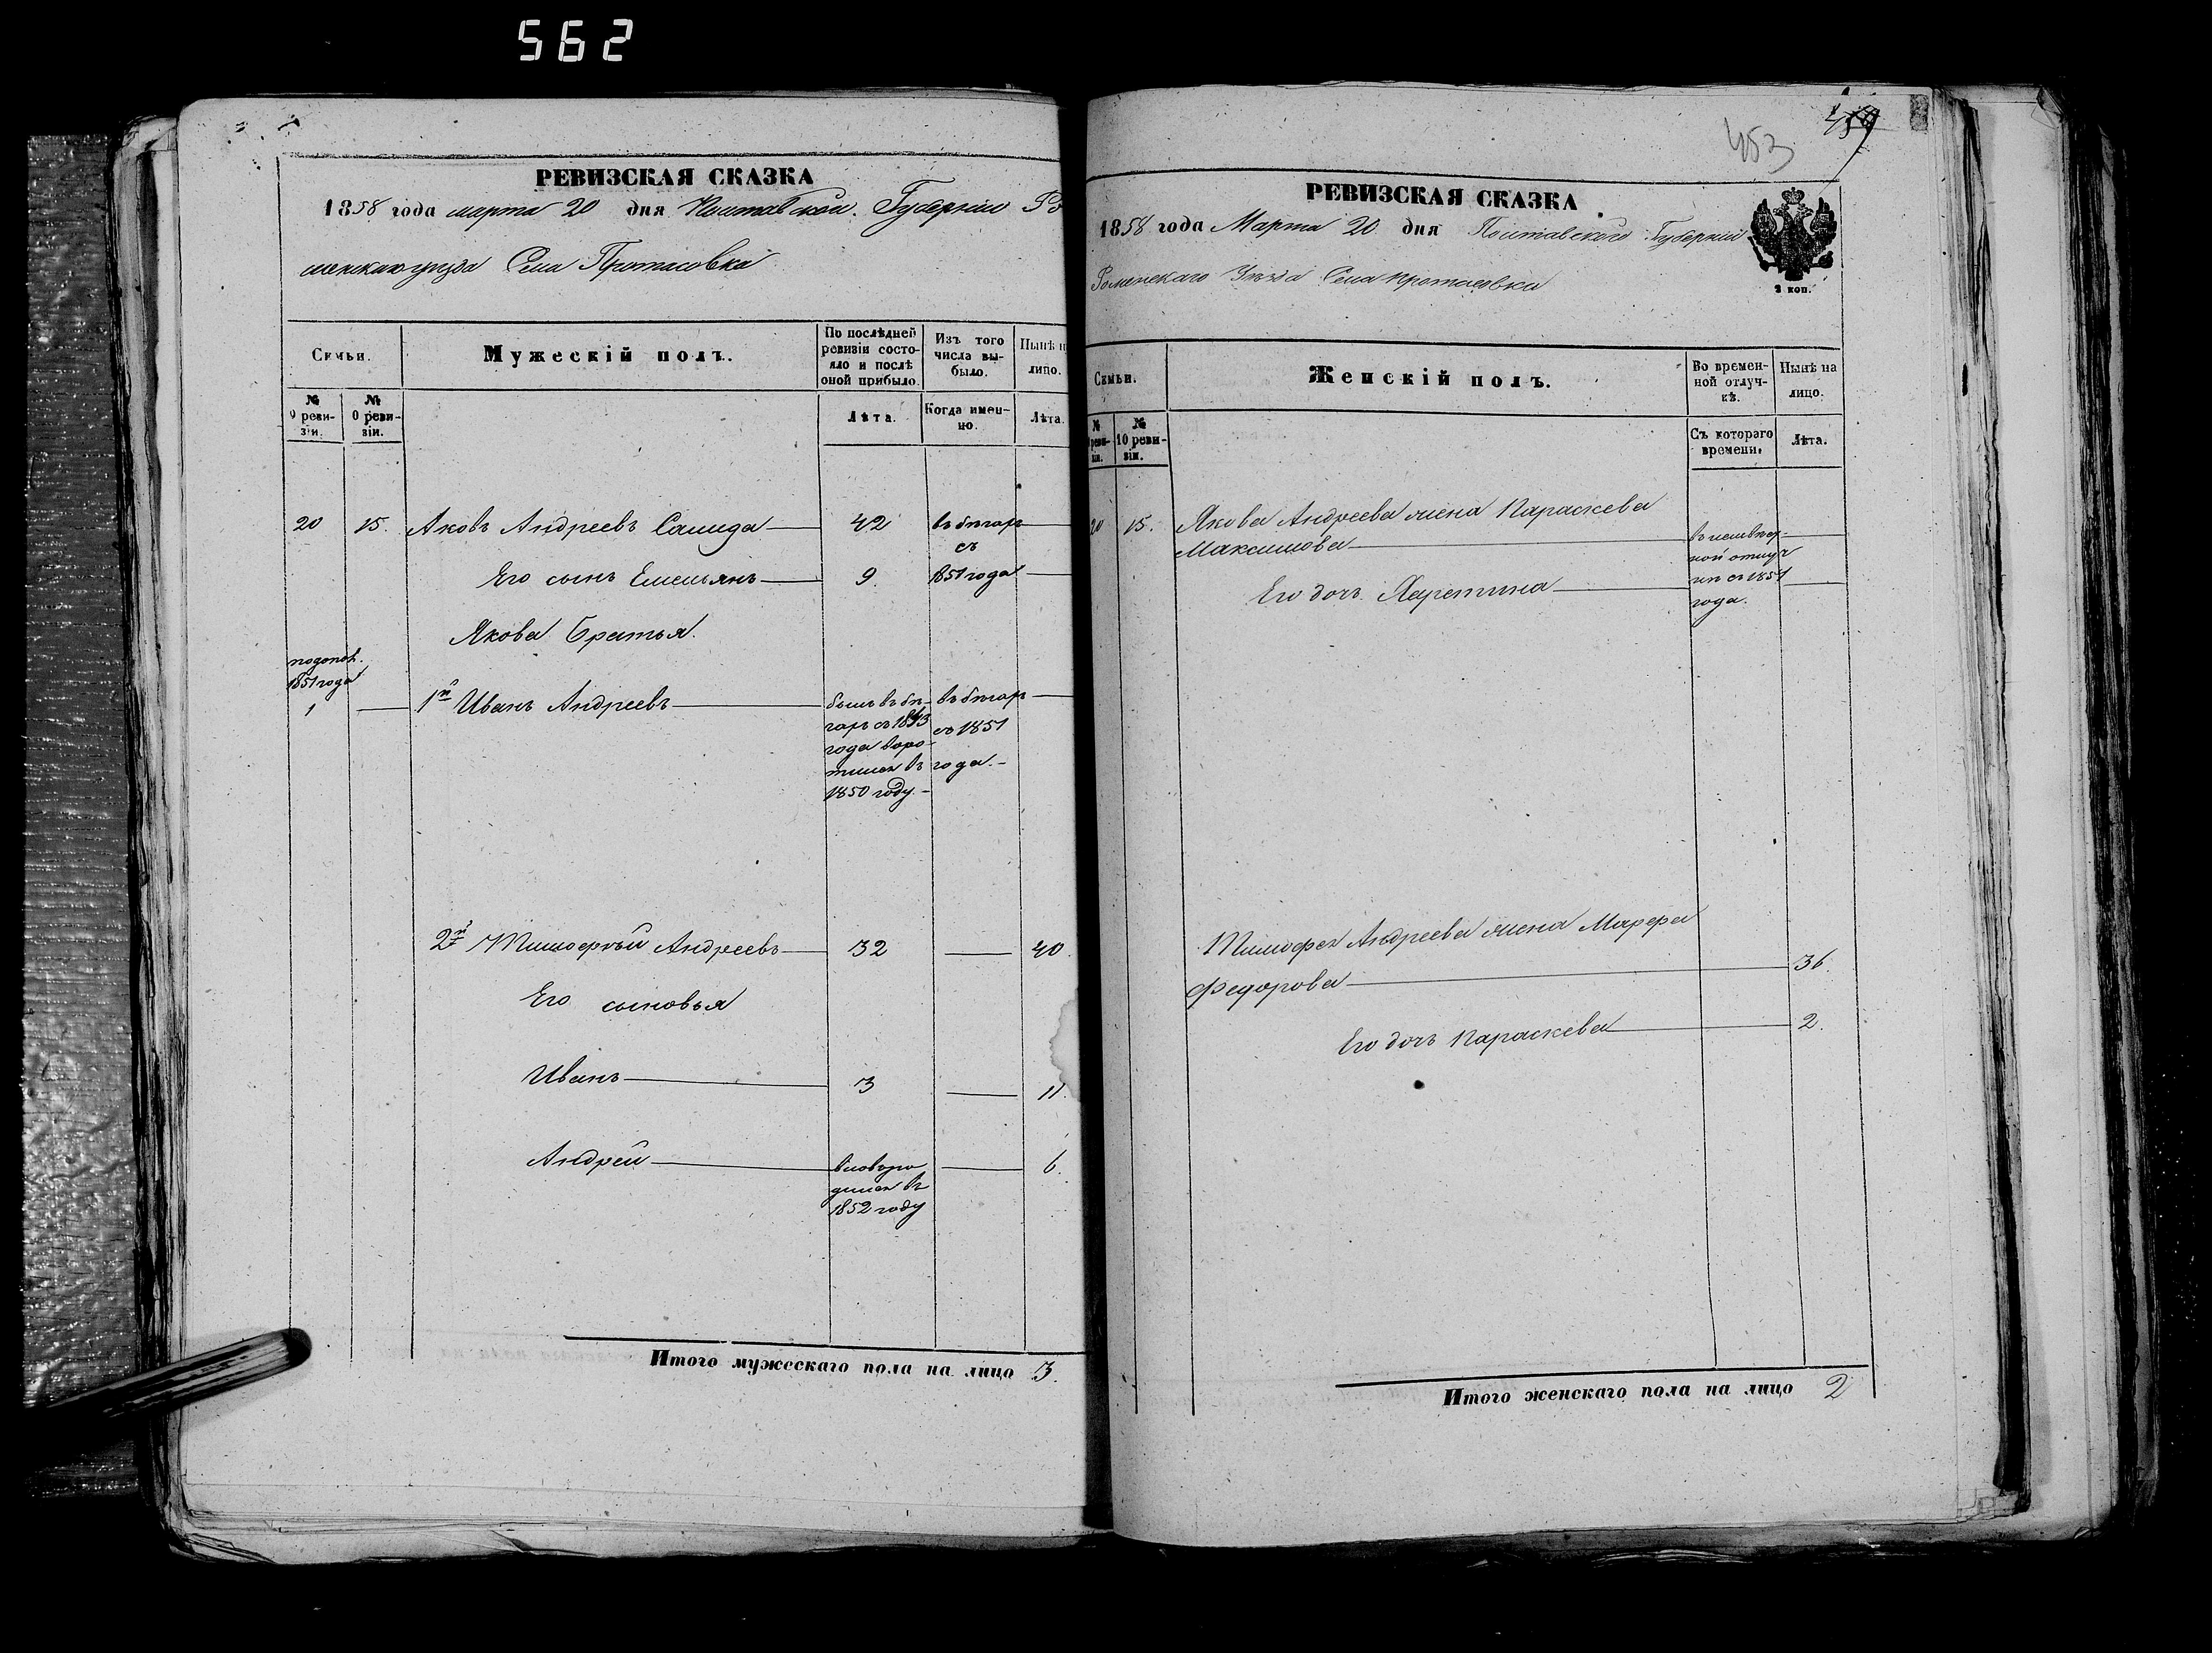 562
РЕВИЗСКАЯ СКАЗКА
1858 года марта 20 дня Полтавской Губернiи Ро
менскаго уезда Села Протасовка
Семьи.
Мужескiй полъ.
По послѣдней
ревизiи состо-
яло и послѣ
оной прибыло.
Изъ того
числа вы-
было.
Нынѣ н
лицо.
№
9 реви-
зiи.
№
0 реви-
зiи.
Лѣта.
Когда имен-
но.
Лѣта.
20 15. Яковъ Андреевъ 42 въ бегахъ
съ
Его сынъ Емельянъ 9. 1851 года
Якова Братья.
1851 года
1 1й Иванъ Андреевъ былъ въ бе- въ бегахъ
гахъ съ 1843 съ 1851
года воро- года.
тился въ
1850 году.
2й Тимофѣй Андреевъ 32 40.
Его сыновья
Иванъ 3 11.
Андрей вновь ро 6.
дился въ
1852 году
Итого мужескаго пола на лицо 3.
453
РЕВИЗСКАЯ СКАЗКА
1858 года Марта 20 дня Полтавской Губернiи
Роменскаго Уезда Села Протасовки
2 коп.
Семьи.
Женскiй полъ.
Во времен-
ной отлуч-
кѣ.
Нынѣ на
лицо.
№
реви-
зiи.
№
10 реви-
зiи.
Съ котораго
времени.
Лѣта.
20 15. Якова Андреева жена Параскева
Максимова
ной отлуч
кѣ съ 1851
года.
Его дочь
Тимофея Андреева жена Марфа
Федорова 36.
Его дочь Параскева 2.
Итого женскаго пола на лицо 2